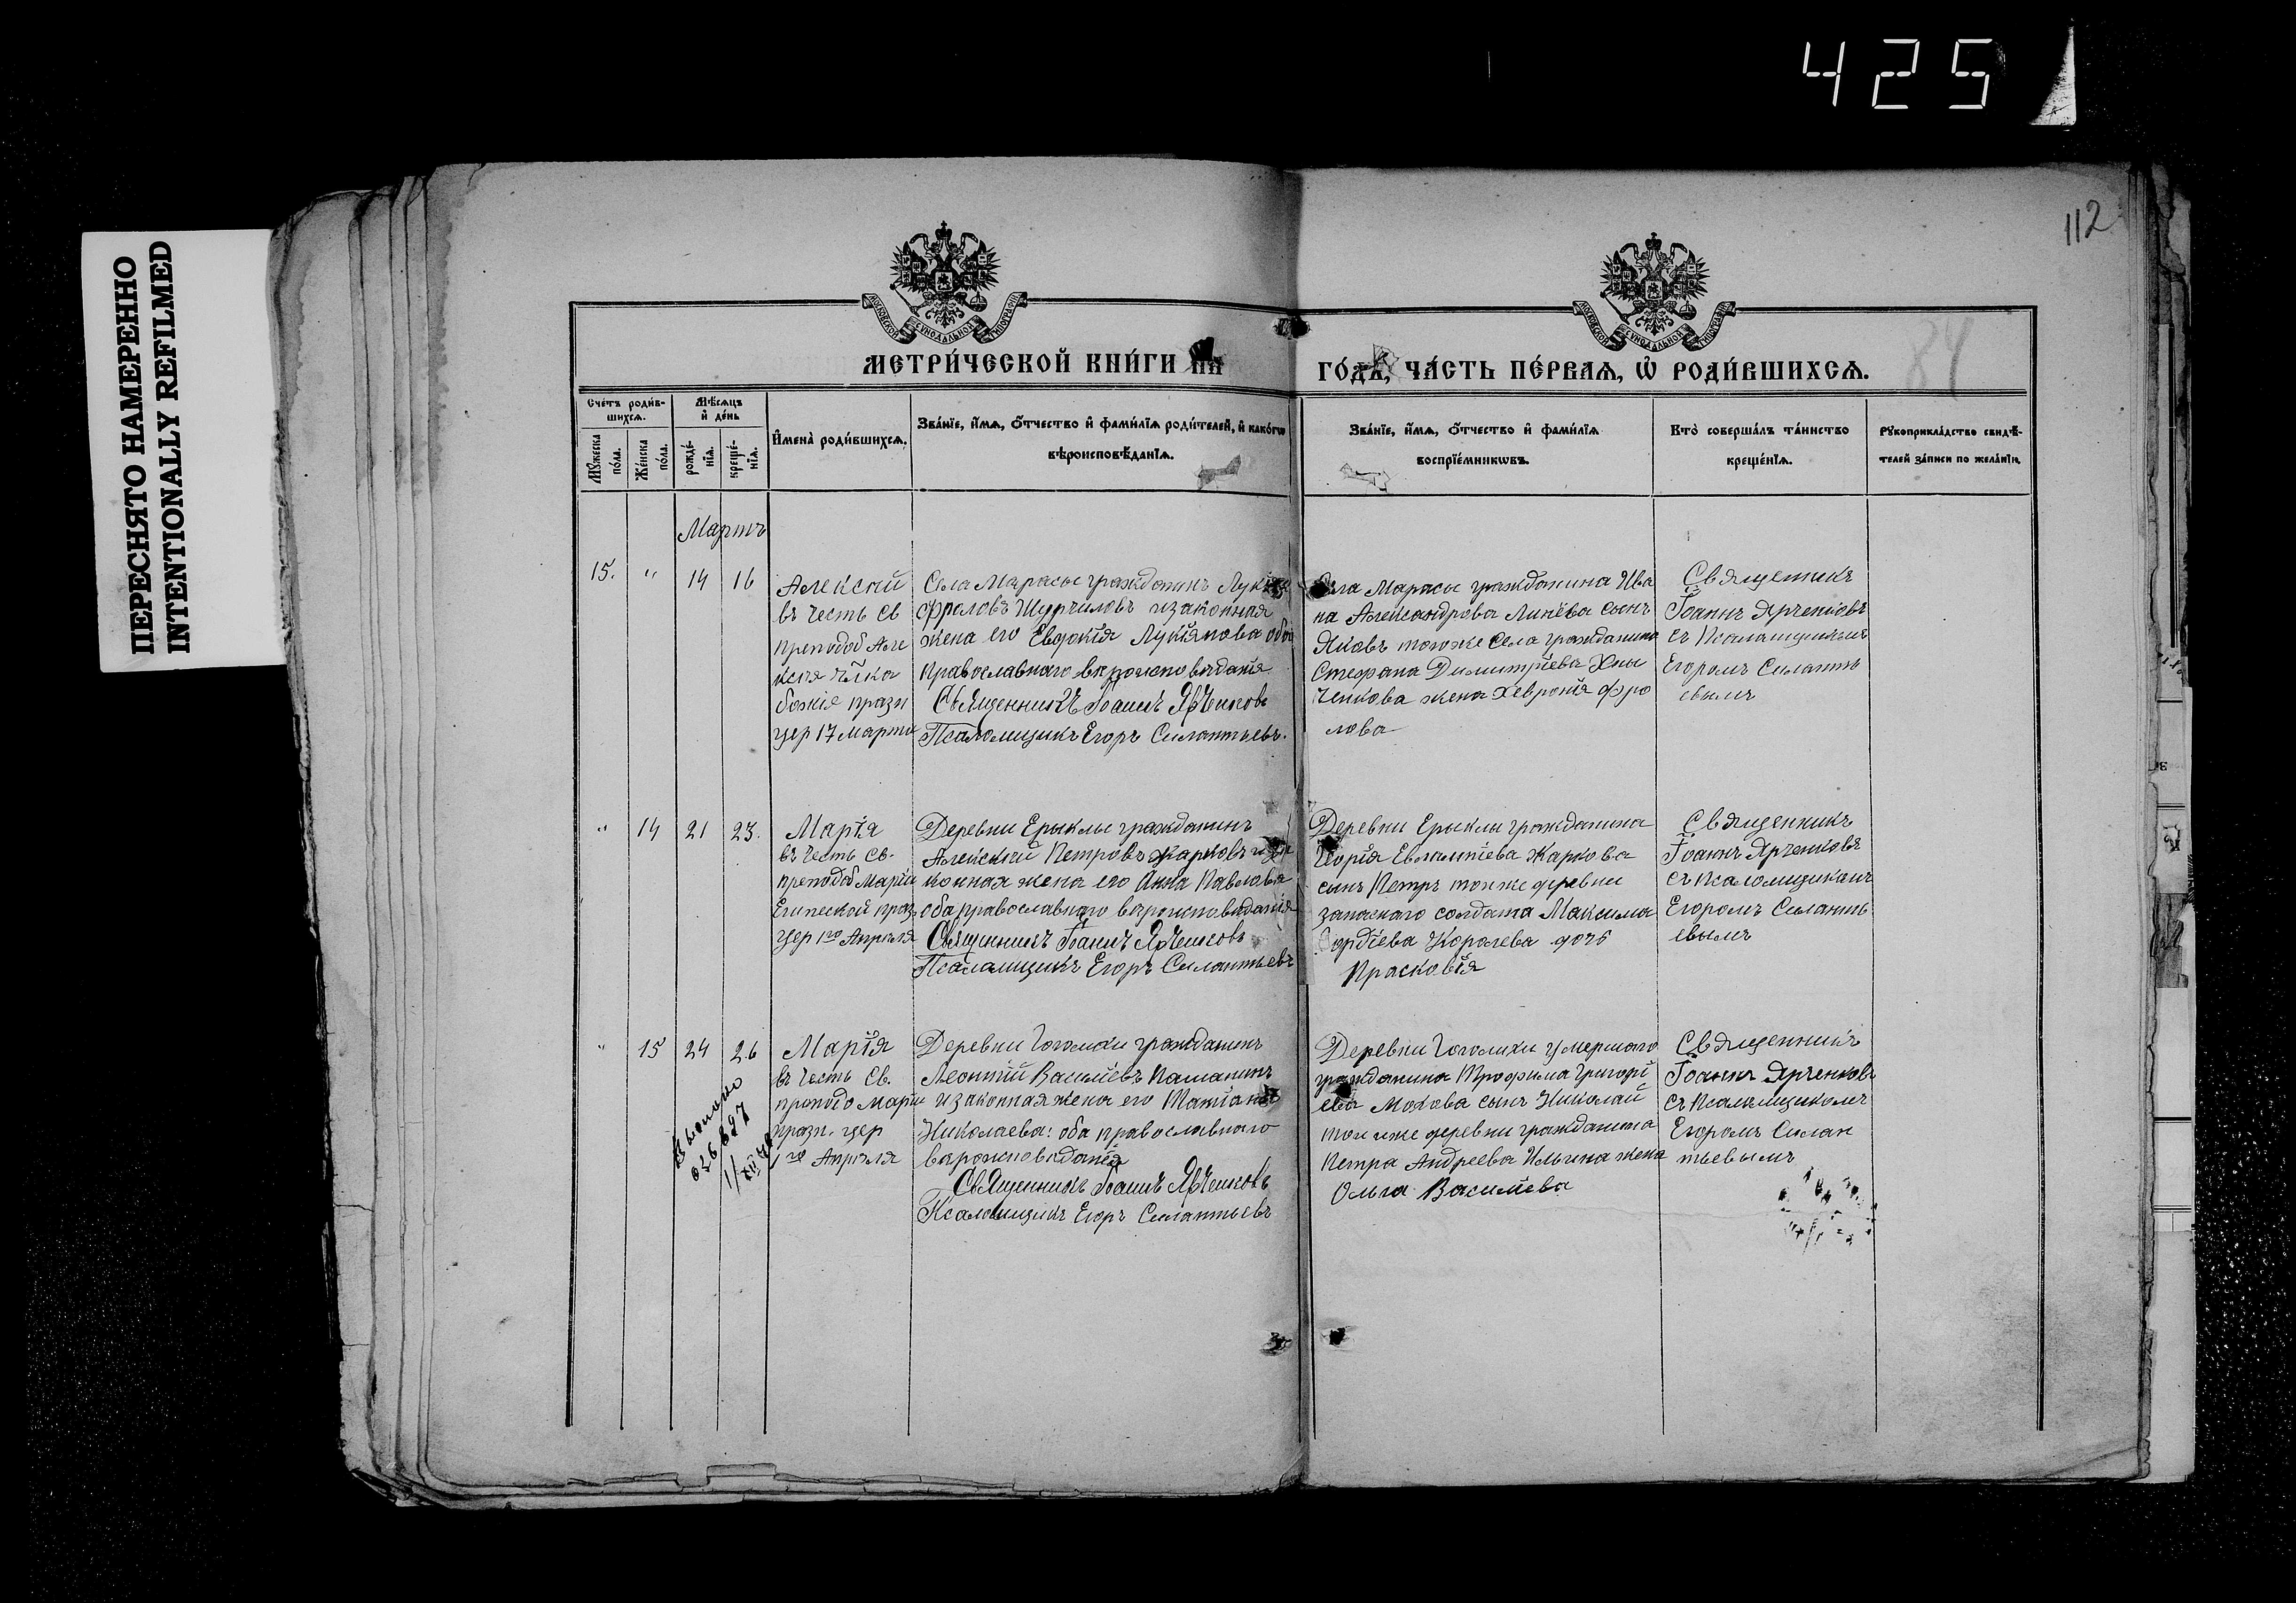 425
112
84
ПЕРЕСНЯТО НАМЕРЕННО
INTENTIONALLY REFILMED
МОСКОВСКОЙ СѴНОДАЛЬНОЙ ТИПОГРАФІИ
МОСКОВСКОЙ СѴНОДАЛЬНОЙ ТИПОГРАФІИ
МЕТРИ́ЧЕСКОЙ КНИ́ГИ НА
ГО́ДЪ, ЧА́СТЬ ПЕ́РВАѦ, Ѡ҆ РОДИ́ВШИХСѦ.
Сче́тъ роди́в-
шихсѧ.
Мꙋжеска по́ла.
Же́нска по́ла.
Мѣ́сѧцъ
и҆ де́нь
рожде́-
нїѧ.
креще́-
нїѧ.
И҆мена̀ роди́вшихсѧ.
Зва́нїе, и҆́мѧ, ѻ҆́тчество и҆ фами́лїѧ роди́телей, и҆ како́гѡ
вѣроисповѣ́данїѧ.
Зва́нїе, и҆́мѧ, ѻ҆́тчество и҆ фами́лїѧ
воспрїе́мникѡвъ.
Кто̀ соверша́лъ та́инство
креще́нїѧ.
Рꙋкоприкла́дство свидѣ́-
телей за́писи по жела́нїю.
Мартъ
15. " 14 16
Алексій
въ честь св
преподоб Але
ксія члка
божія празн
цер 17 марта
Села Марасы гражданинъ Лукія
Фроловъ Шурчиловъ изаконная
жена его Евдокія Лукіянова оба
Православнаго вѣроисповѣданія
Священникъ Іоаннъ Ярченковъ
Псаломщикъ Егоръ Силантьевъ.
Села Марасы гражданина Ива
на Александрова Линёва сынъ
Яковъ тогоже села гражданина
Стефана Димитріева Хны
ченкова жена Хевронія Фро
лова
Священникъ
Іоаннъ Ярченковъ
съ Псаломщикомъ
Егоромъ Силанть
евымъ
" 14 21 23.
Марія
въ честь св.
преподоб Маріи
Египеской праз.
цер 1го Апрѣля
Деревни Ерыклы гражданинъ
Алексѣй Петровъ Жарковъ иза
конная жена его Анна Павлова
оба православнаго вѣроисповѣданія
Священникъ Іоаннъ Ярченковъ
Псаломщикъ Егоръ Силантьевъ
Деревни Ерыклы гражданина
Георгія Евлампіева Жаркова
сынъ Петръ тойже деревни
запаснаго солдата Максима
Гордіева Королева дочь
Прасковія
Священникъ
Іоаннъ Ярченковъ
съ псаломщикомъ
Егоромъ Силанть
евымъ
" 15 24 26
Марія
въ честь Св.
преподо Маріи
празн. цер
1го Апрѣля
Деревни Гоголихи гражданинъ
Леонтій Васильевъ Пашанинъ
изаконная жена его Татіана
Николаева: оба православнаго
вѣроисповѣданія
Священникъ Іоаннъ Ярченковъ
Псаломщикъ Егоръ Силантьевъ
Деревни Гоголихи умершаго
гражданина Трофима Григорі
ева Мохова сынъ Николай
той же деревни гражданина
Петра Андреева Ильина жена
Ольга Васильева
Священникъ
Іоаннъ Ярченковъ
съ Псаломщикомъ
Егоромъ Силан
тьевымъ